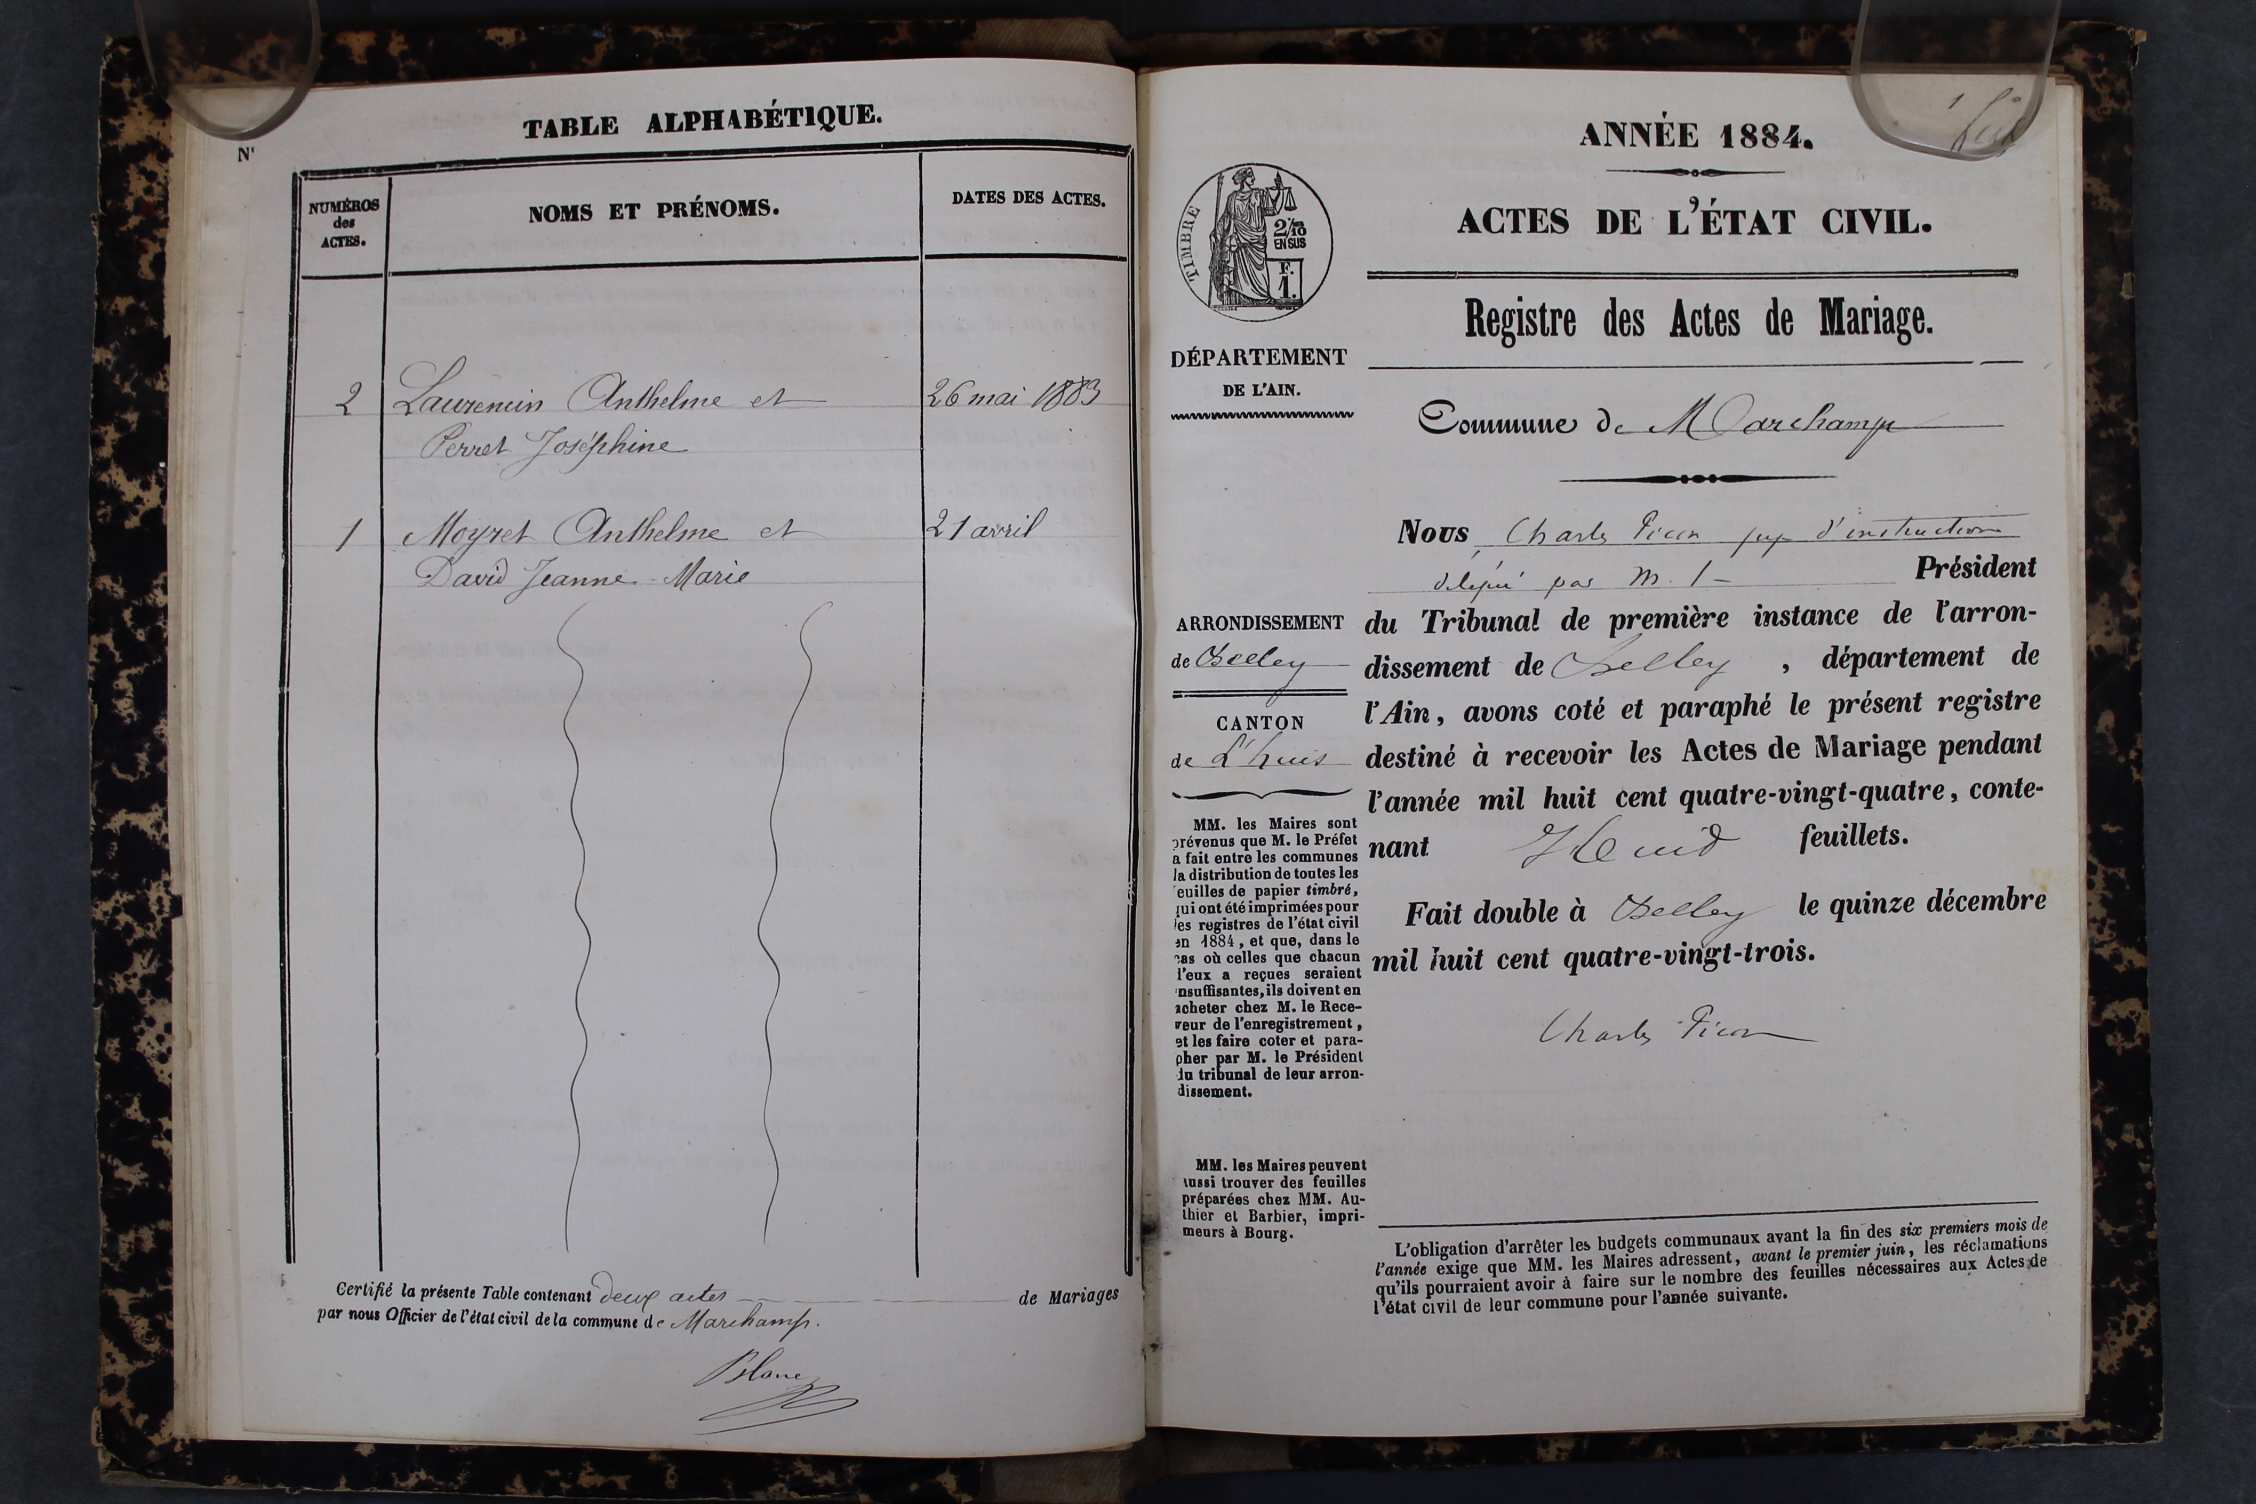 TABLE ALPHABÉTIQUE.
N
NUMÉROS
des
ACTES.
NOMS ET PRÉNOMS.
DATES DES ACTES.
2 Laurencin Anthelme et 26 mai 1883
Perret Joséphine
1 Moyret Anthelme et 21 avril
David Jeanne-Marie
Certifié la présente Table contenant deux actes de Mariages
par nous Officier de l'état civil de la commune de Marchamp.
Blanc
ANNÉE 1884.
ACTES DE L'ÉTAT CIVIL.
TIMBRE
2/10
EN SUS
F.
1.
Registre des Actes de Mariage.
DÉPARTEMENT
DE L'AIN.
Commune de Marchamp
Nous Charles Picon juge d'instruction
délégué par M. l Président
du Tribunal de première instance de l'arron-
dissement de Belley, département de
l'Ain, avons coté et paraphé le présent registre
destiné à recevoir les Actes de Mariage pendant
l'année mil huit cent quatre-vingt-quatre, conte-
nant feuillets.
Fait double à Belley le quinze décembre
mil huit cent quatre-vingt-trois.
Charles Picon
ARRONDISSEMENT
de Belley
CANTON
de L'huis
MM. les Maires sont
prévenus que M. le Préfet
a fait entre les communes
la distribution de toutes les
feuilles de papier timbré,
qui ont été imprimées pour
les registres de l'état civil
en 1884, et que, dans le
cas où celles que chacun
d'eux a reçues seraient
insuffisantes, ils doivent en
acheter chez M. le Rece-
veur de l'enregistrement,
et les faire coter et para-
pher par M. le Président
du tribunal de leur arron-
dissement.
MM. les Maires peuvent
aussi trouver des feuilles
préparées chez MM. Au-
thier et Barbier, impri-
meurs à Bourg.
L'obligation d'arrêter les budgets communaux avant la fin des six premiers mois de
l'année exige que MM. les Maires adressent, avant le premier juin, les réclamations
qu'ils pourraient avoir à faire sur le nombre des feuilles nécessaires aux Actes de
l'état civil de leur commune pour l'année suivante.